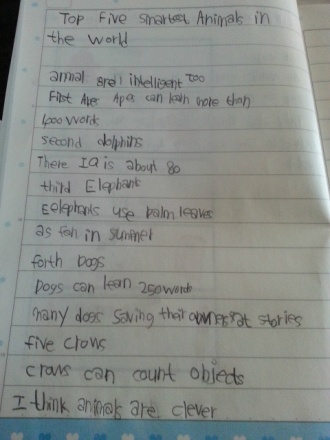 Top Five Smartest Animals in
the world
animal are intelligent too
First Ape Apes can learn more than
400 words
second dolphins
There IQ is about 80
third Elephant
Eelephants use palm leaves
as fan in summer
forth Dogs
Dogs can lean 250 words
many dogs saving their owners at stories
five crows
crows can count objects
I think animals are clever